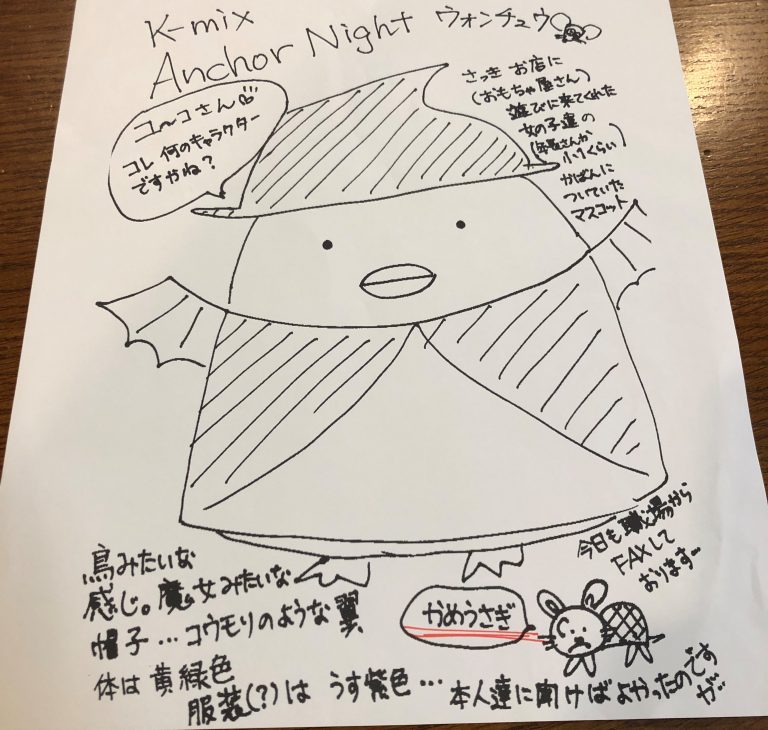 K-mix
Anchor Night ウォンチュウ
コ〜コさん♡
コレ 何のキャラクター
ですやね？
さっき お店に
(おもちゃ屋さん)
遊びに来てくれた
女の子達の
小1くらい)
かばんに
ついていた
マスコット
鳥みたいな
感じ。魔女みたいな
帽子…コウモリのような翼
体は 黄緑色
服装(?)は うす紫色…
本人達に聞けばよかったのですが…
今日も職場から
FAXして
おります…
かめうさぎ